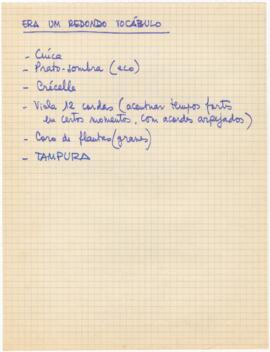 ERA UM REDONDO VOCÁBULO
- Cuíca
- Prato-sombra (eco)
- Crécelle
- Viola 12 cordas (acentuar tempos fortes
em certos momentos, com acordes arpejados)
- Coro de flautas (graves)
- TAMPURA